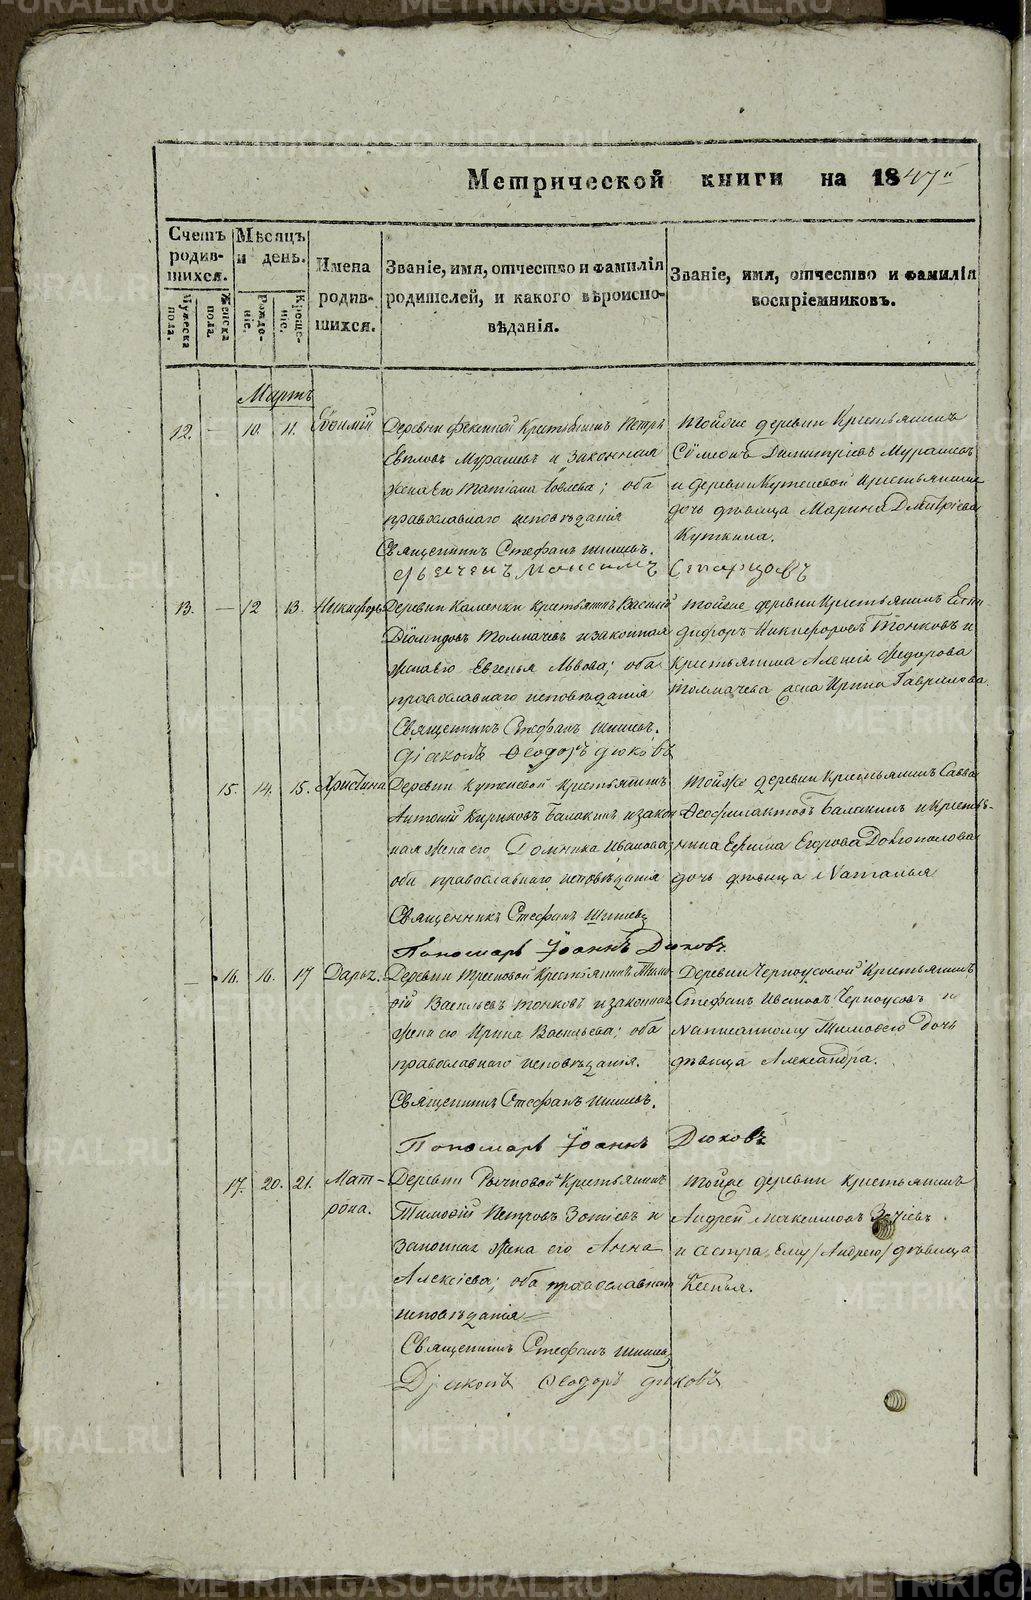 Метрической книги на 1847
Счетъ родив-шихся.
Мужеска пола.
Женска пола.
Мѣсяцъ и день.
Рожде-ніе.
Креще-ніе.
Имена родив-шихся.
Званіе, имя, отчество и фамилія родителей, и какого вѣроиспо-вѣданія.
Званіе, имя, отчество и фамилія воспріемниковъ.
Мартъ
12. — 10. 11.
Деревни Крестьянинъ Петръ
Евпловъ Мурашевъ и законная
жена его Татіана Іовлева; оба
православнаго исповѣданія
Священникъ Стефанъ Шишевъ.
Максимъ Старцовъ
Тойже деревни Крестьянинъ
Сѵмеонъ Димитріевъ Мурашевъ
и деревни Кутеневой Крестьянина
дочь дѣвица Марина Дмитріева
Куткина.
13. — 12 13. Никифоръ
Деревни Каменки крестьянинъ Василій
Діомидовъ Толмачевъ и законная
жена его Евгенья Львова; оба
православнаго исповѣданія
Священникъ Стефанъ Шишевъ.
Діаконъ Ѳеодоръ Дюковъ
Тойже деревни Крестьянинъ
Никифоровъ Тонковъ и
крестьянина Алексія Ѳедорова
Толмачева жена Ирина Гаврилова.
15. 14. 15. Христина
Деревни Кутеневой крестьянинъ
Антоній Кириковъ Балакинъ и закон
ная жена его Домника Иванова;
оба православнаго исповѣданія
Священникъ Стефанъ Шишевъ
Пономарь Іоаннъ Дюковъ.
Тойже деревни Крестьянинъ Савва
Ѳеофилактовъ Балакинъ и Крестья-
нина Ефима Егорова Долгополова
дочь дѣвица Наталья
— 16. 16. 17 Дарья.
Деревни Крестьянинъ Тимо-
ѳій Васильевъ Тонковъ и законная
жена его Ирина Васильева; оба
православнаго исповѣданія.
Священникъ Стефанъ Шишевъ.
Пономарь Іоаннъ Дюковъ
Деревни Черноусовой Крестьянинъ
Стефанъ Ивановъ Черноусовъ и
написанному Тимоѳею дочь
дѣвица Александра.
17. 20. 21. Мат-
рона.
Деревни Рычковой Крестьянинъ
Тимоѳій Петровъ Зотіевъ и
законная жена его Анна
Алексіева; оба православнаго
исповѣданія
Священникъ Стефанъ Шишевъ
Діаконъ Ѳеодоръ Дюковъ
Тойже деревни крестьянинъ
Андрей Максимовъ Зотіевъ
и сестра Ему /Андрею/ дѣвица
Ксенья.
METRIKI.GASO-URAL.RU